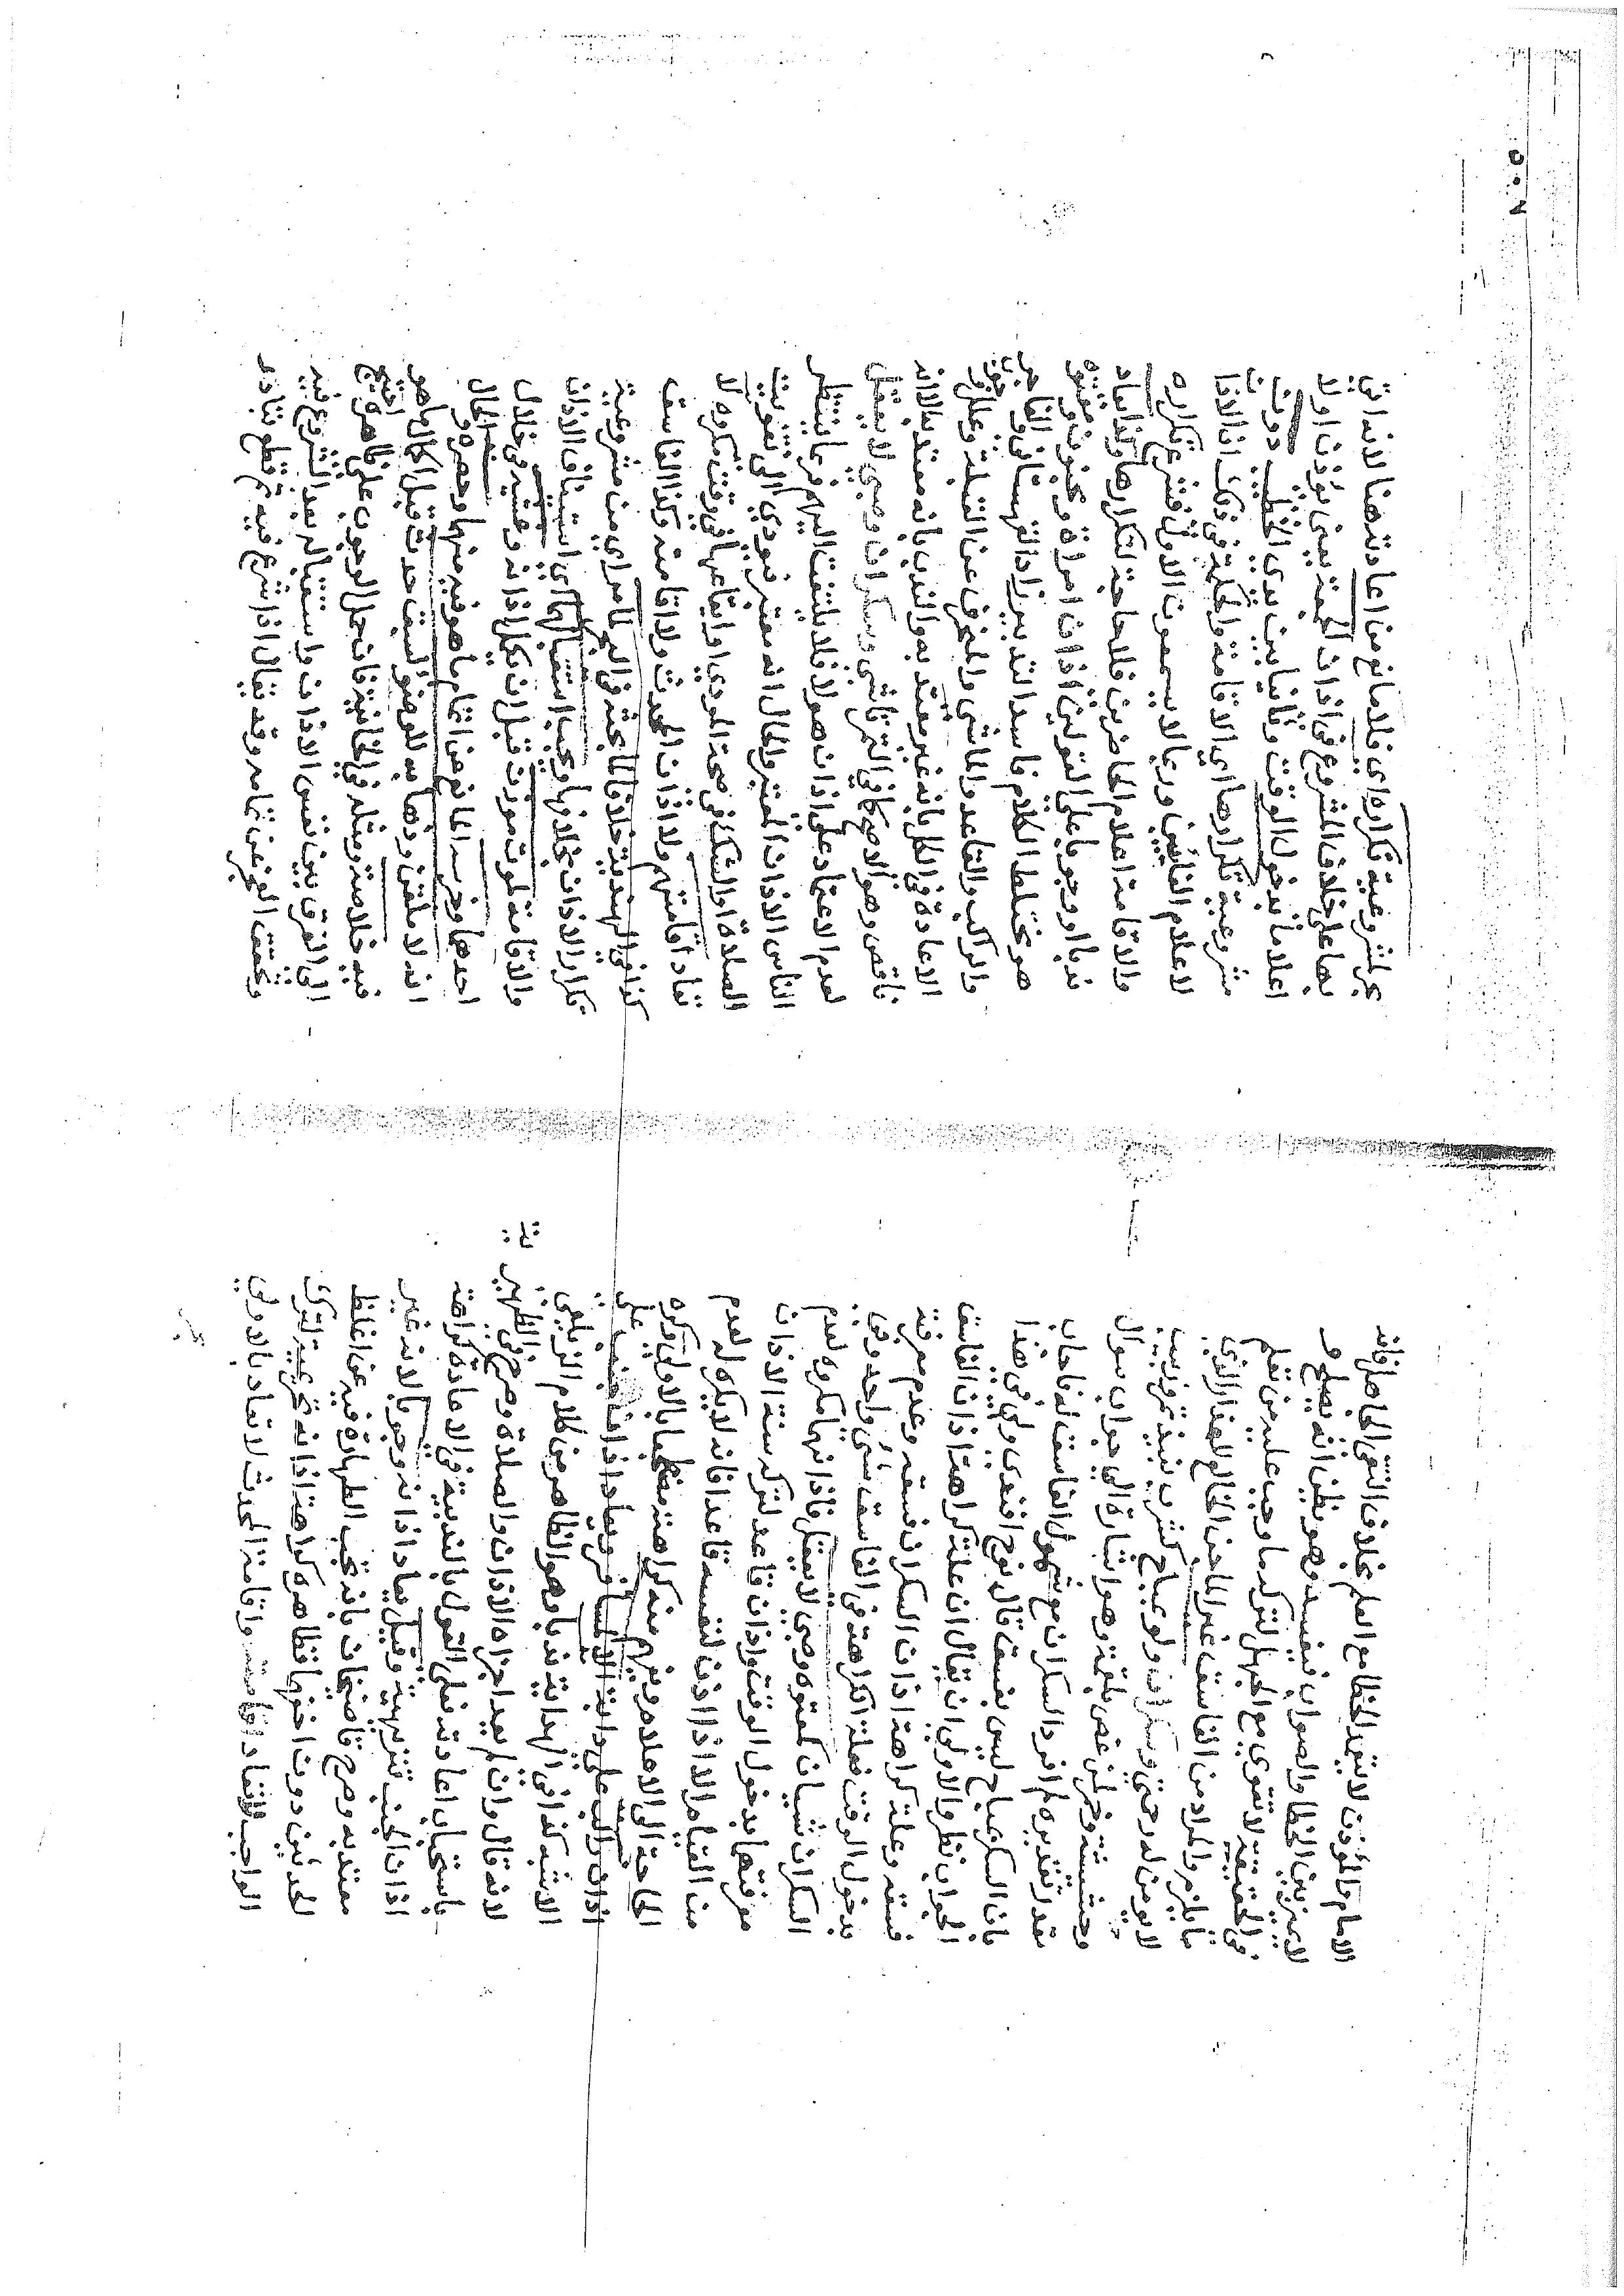 الامام والمؤذن لا يتم الخطا مع العلم بخلاف التقي الجاهل فانه
لا يميز بين الخطا والصواب فيفسد وهو يظن انه يصلح و
في الحقيقة لا تقوى مع الجهل لتركه ما وجب عليه من تعلم
ما يلزم والمراد من الفاسق غير الماجن الخالع للعذار الذي
لا يؤمن وسكران ولو بمباح كشرب نبيذ تمر وزبيب
وحشيشة وخمر لمن غص بلقمة وهو اشارة الى جواب سوال
مقدر تقديره لم افرد السكران مع شمول الفاسق له فاجاب
بان السكر بمباح ليس بفسق قال نوح افندي ولي في هذا
الجواب نظر والاولى ان يقال ان علة كراهة اذان الفاسق
فسقه وعلة كراهة اذان السكران فسقه وعدم معرفته
بدخول الوقت فعلة الكراهة في الفاسق شيء واحد وفي
السكران شيئان كمعتوه وصبي لا يعقل فاذانهما مكروه لعدم
معرفتهما بدخول الوقت واذان قاعد لتركه سنة الاذان
من القيام الا اذا اذن لنفسه قاعدا فانه لا يكره لعدم
الحاجة الى الاعلام ويفهم منه كراهته مضطجعا بالاولى ويكره
اذان راكب على دابة الا لمسافر ويعاد اذان جنب على
الاشبه كذا في الهداية ندبا وهو الظاهر من كلام الزيلعي
لانه قال وان لم يعد اجزاه الاذان والصلاة وصرح في الظهيرية
باستحباب اعادته فعلى القول بالندبية في الاعادة كراهة
اذان الجنب تنزيهية وقيل يعاد اذانه وجوبا لانه غير
معتد به وصرح قاضيخان بانه تجب الطهارة فيه عن اغلظ
الحدثين دون اخفهما فظاهره كراهة اذانه تحريمية لترك
الواجب ولا تعاد اقامته واقامة المحدث لا تعاد بالاولى
٥٠٧
لمشروعية تكراره اي فلا مانع من اعادته هنا لانه اتى
بها على خلاف المشروع في اذان الجمعة يعني يؤذن اولا
اعلاما بدخول الوقت وثانيا بين يدي الخطيب دون
مشروعية تكرارها اي الاقامة والحكمة في ذلك ان الاذان
لاعلام الغائبين وربما لا يسمعون الاول فشرع تكراره
والاقامة اعلام الحاضرين فلا حاجة لتكرارها وكذا يعاد
ندبا او وجوبا على القولين اذان امراة ومجنون ومعتوه
هو مختلط الكلام فاسد التدبير زاد القهستاني والفاجر
والراكب والقاعد والماشي والمنحرف عن القبلة وعلل وجوب
الاعادة في الكل بانه غير معتد به والندب بانه معتد به الا انه
ناقص وهو الاصح كما في التمرتاشي وسكران وصبي لا يعقل
لعدم الاعتماد على اذان هولاء فلا يلتفت اليهم فربما ينتظر
الناس الاذان المعتبر والحال انه معتبر فيودي الى تفويت
الصلاة او الشك في صحة المودي او ايقاعها في وقت مكروه لا
تعاد اقامتهم ولا اذان المحدث ولا اقامته وكذا الفاسق
كذا في الهندية خلافا لما بحثه في البحر لما مر اي من مشروعية
تكرار الاذان بخلافها ويجب استقبالهما اي استيناف الاذان
والاقامة لموت مؤذن قبل ان يكمل اذانه وغشيه في خلال
احدهما وخرسه المانع عن اتمام ما هو فيه منهما وحصره و
انه لا ملقن وذهابه للوضوء لسبق حدث قبل اكمال ما هو
فيه خلاصة ومثله في الخانية فان حمل الوجوب على ظاهره احتيج
الى الفرق بين نفس الاذان واستقباله بعد الشروع فيه
وتحقق العجز عن تمامه وقد يقال اذا شرع فيه ثم قطع تبادر